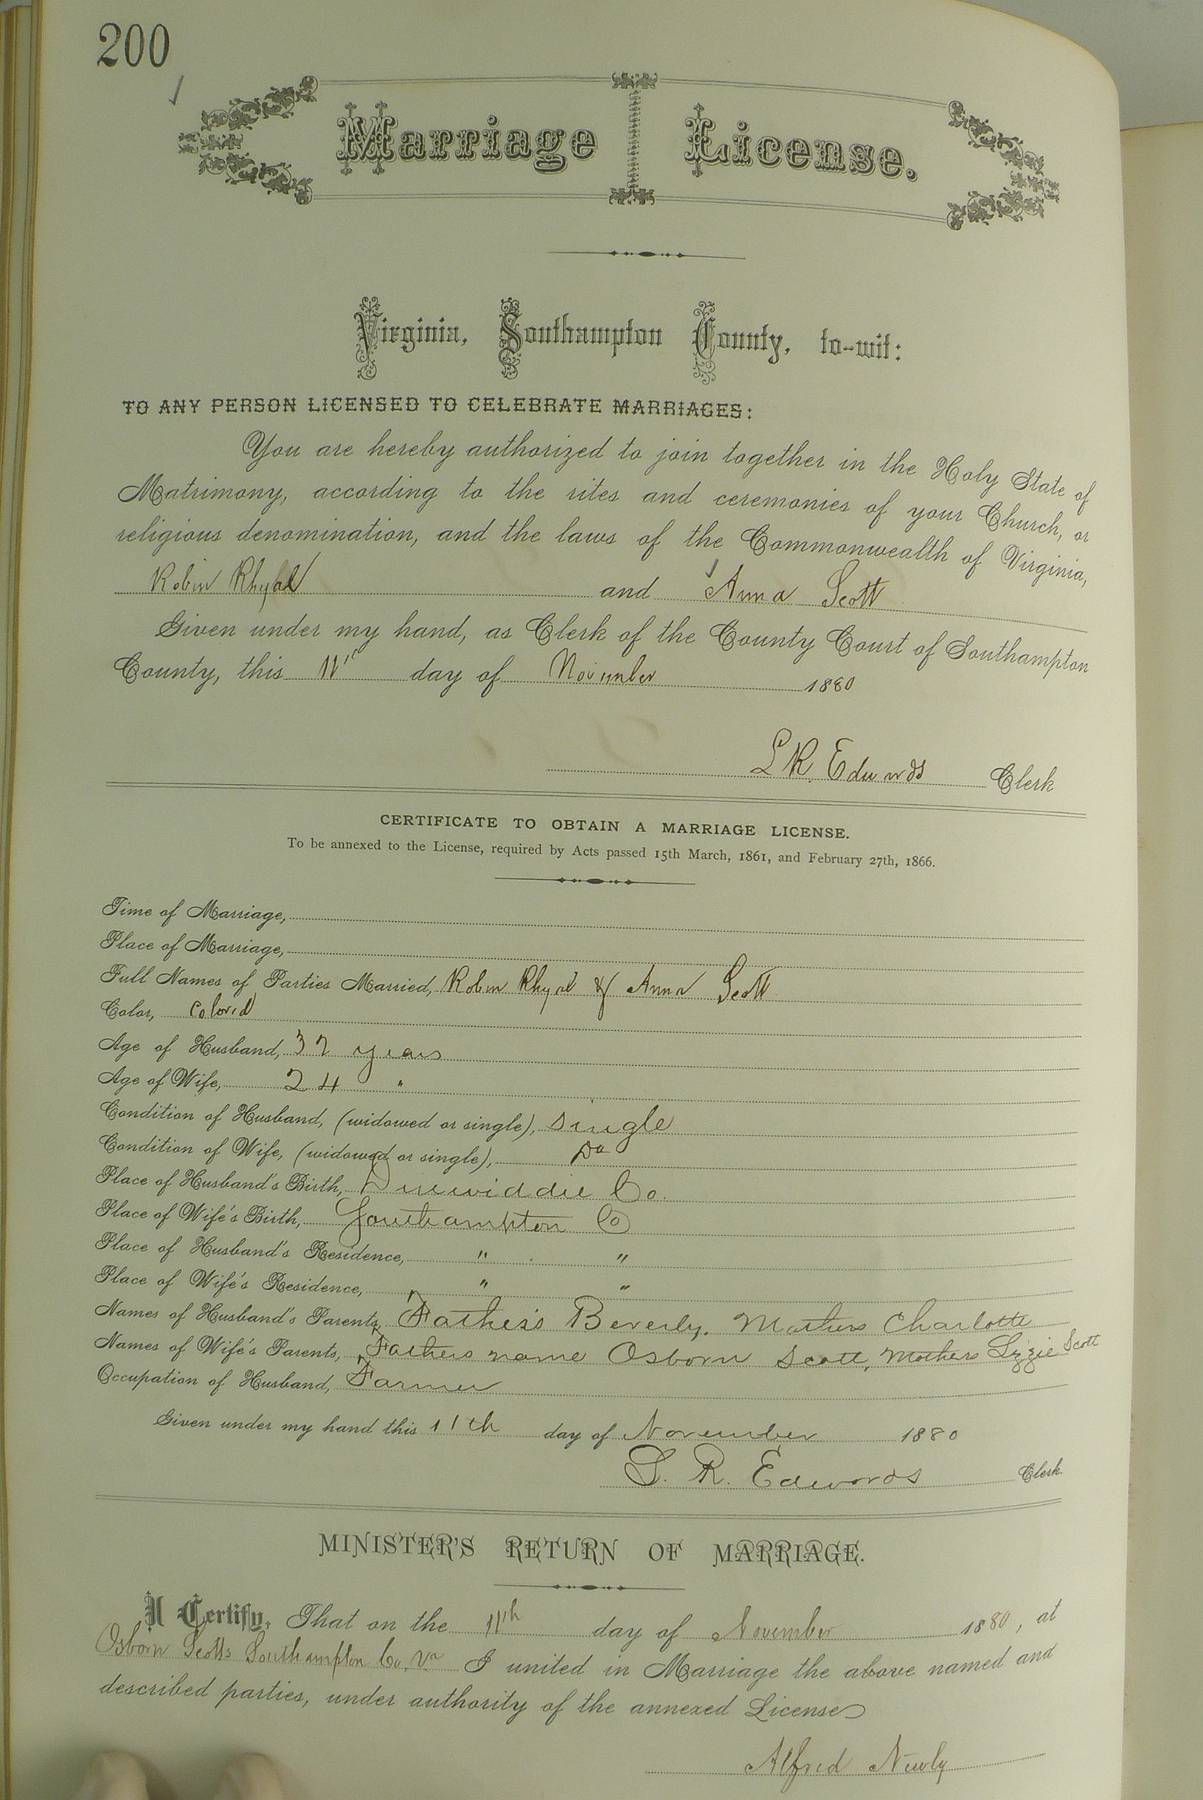 200
Marriage License.
Virginia, Southampton County, to-wit:
TO ANY PERSON LICENSED TO CELEBRATE MARRIAGES:
You are hereby authorized to join together in the Holy State of
Matrimony, according to the rites and ceremonies of your Church, or
religious denomination, and the laws of the Commonwealth of Virginia,
Robin Rhyal and Anna Scott
Given under my hand, as Clerk of the County Court of Southampton
County, this 11th day of November 1880
L R. Edwards Clerk
CERTIFICATE TO OBTAIN A MARRIAGE LICENSE.
To be annexed to the License, required by Acts passed 15th March, 1861, and February 27th, 1866.
Time of Marriage,
Place of Marriage,
Full Names of Parties Married, Robin Rhyal & Anna Scott
Color, Colored
Age of Husband, 32 years
Age of Wife, 24 "
Condition of Husband, (widowed or single), single
Condition of Wife, (widowed or single), Do
Place of Husband's Birth, Dinwiddie Co.
Place of Wife's Birth, Southampton Co
Place of Husband's Residence, " "
Place of Wife's Residence, " "
Names of Husband's Parents, Father's Beverly. Mothers Charlotte
Names of Wife's Parents, Fathers name Osborn Scott, Mothers Lizzie Scott
Occupation of Husband, Farmer
Given under my hand this 11th day of November 1880
L. R. Edwards Clerk
MINISTER'S RETURN OF MARRIAGE.
I Certify, That on the 11th day of November 1880, at
Osborn Scotts Southampton Co. Va I united in Marriage the above named and
described parties, under authority of the annexed License
Alfred Newly